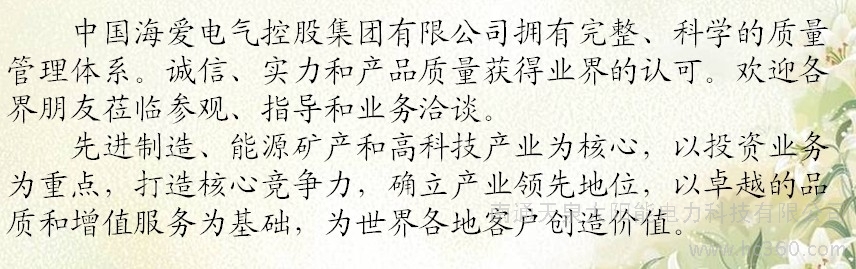 中国海爱电气控股集团有限公司拥有完整、科学的质量
管理体系。诚信、实力和产品质量获得业界的认可。欢迎各
界朋友莅临参观、指导和业务洽谈。
先进制造、能源矿产和高科技产业为核心，以投资业务
为重点，打造核心竞争力，确立产业领先地位，以卓越的品
质和增值服务为基础，为世界各地客户创造价值。